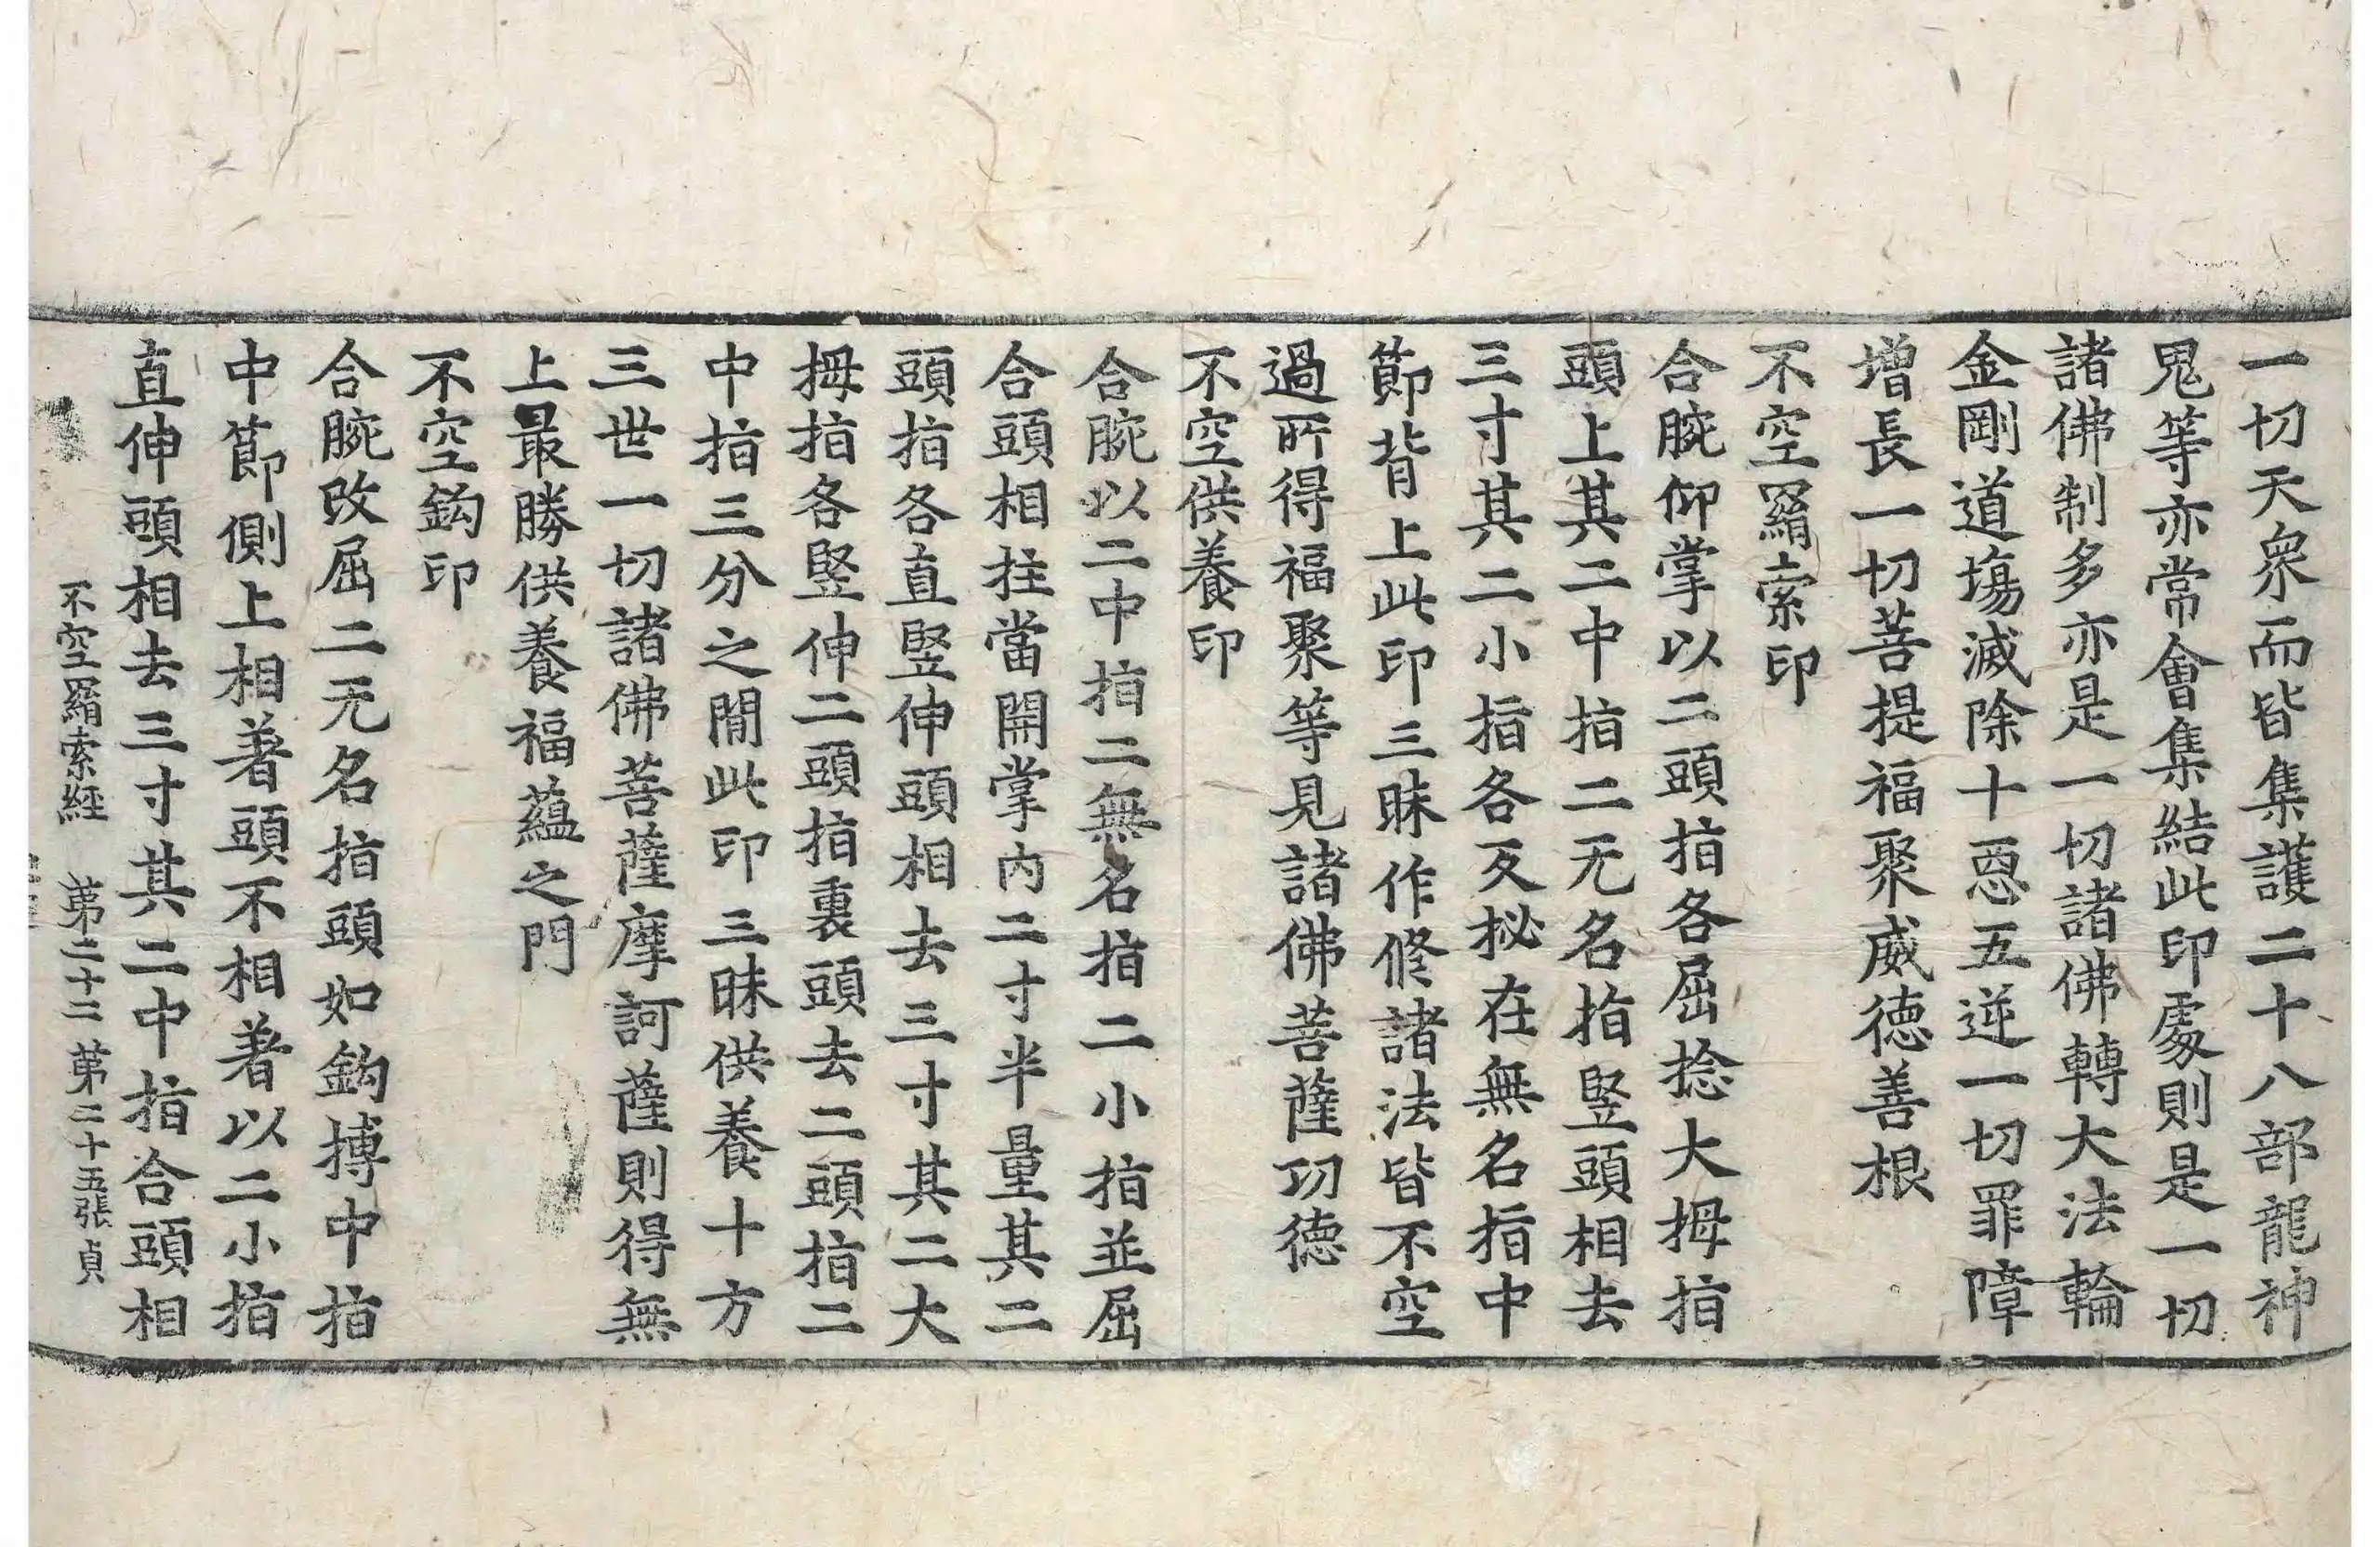 一切天衆而皆集護二十八部龍神
鬼等亦常會集結此印處則是一切
諸佛制多亦是一切諸佛轉大法輪
金剛道場滅除十惡五逆一切罪障
增長一切菩提福聚威德善根
不空羂索印
合腕仰掌以二頭指各屈捻大拇指
頭上其二中指二无名指竪頭相去
三寸其二小指各反柲在無名指中
節背上此印三昧作修諸法皆不空
過所得福聚等見諸佛菩薩功德
不空供養印
合腕以二中指二無名指二小指並屈
合頭相拄當開掌內二寸半量其二
頭指各直竪伸頭相去三寸其二大
拇指各竪伸二頭指裏頭去二頭指二
中指三分之間此印三昧供養十方
三世一切諸佛菩薩摩訶薩則得無
上最勝供養福蘊之門
不空鈎印
合腕改屈二无名指頭如鈎搏中指
中節側上相著頭不相著以二小指
直伸頭相去三寸其二中指合頭相
不空羂索經 第二十二 第二十五張 貞